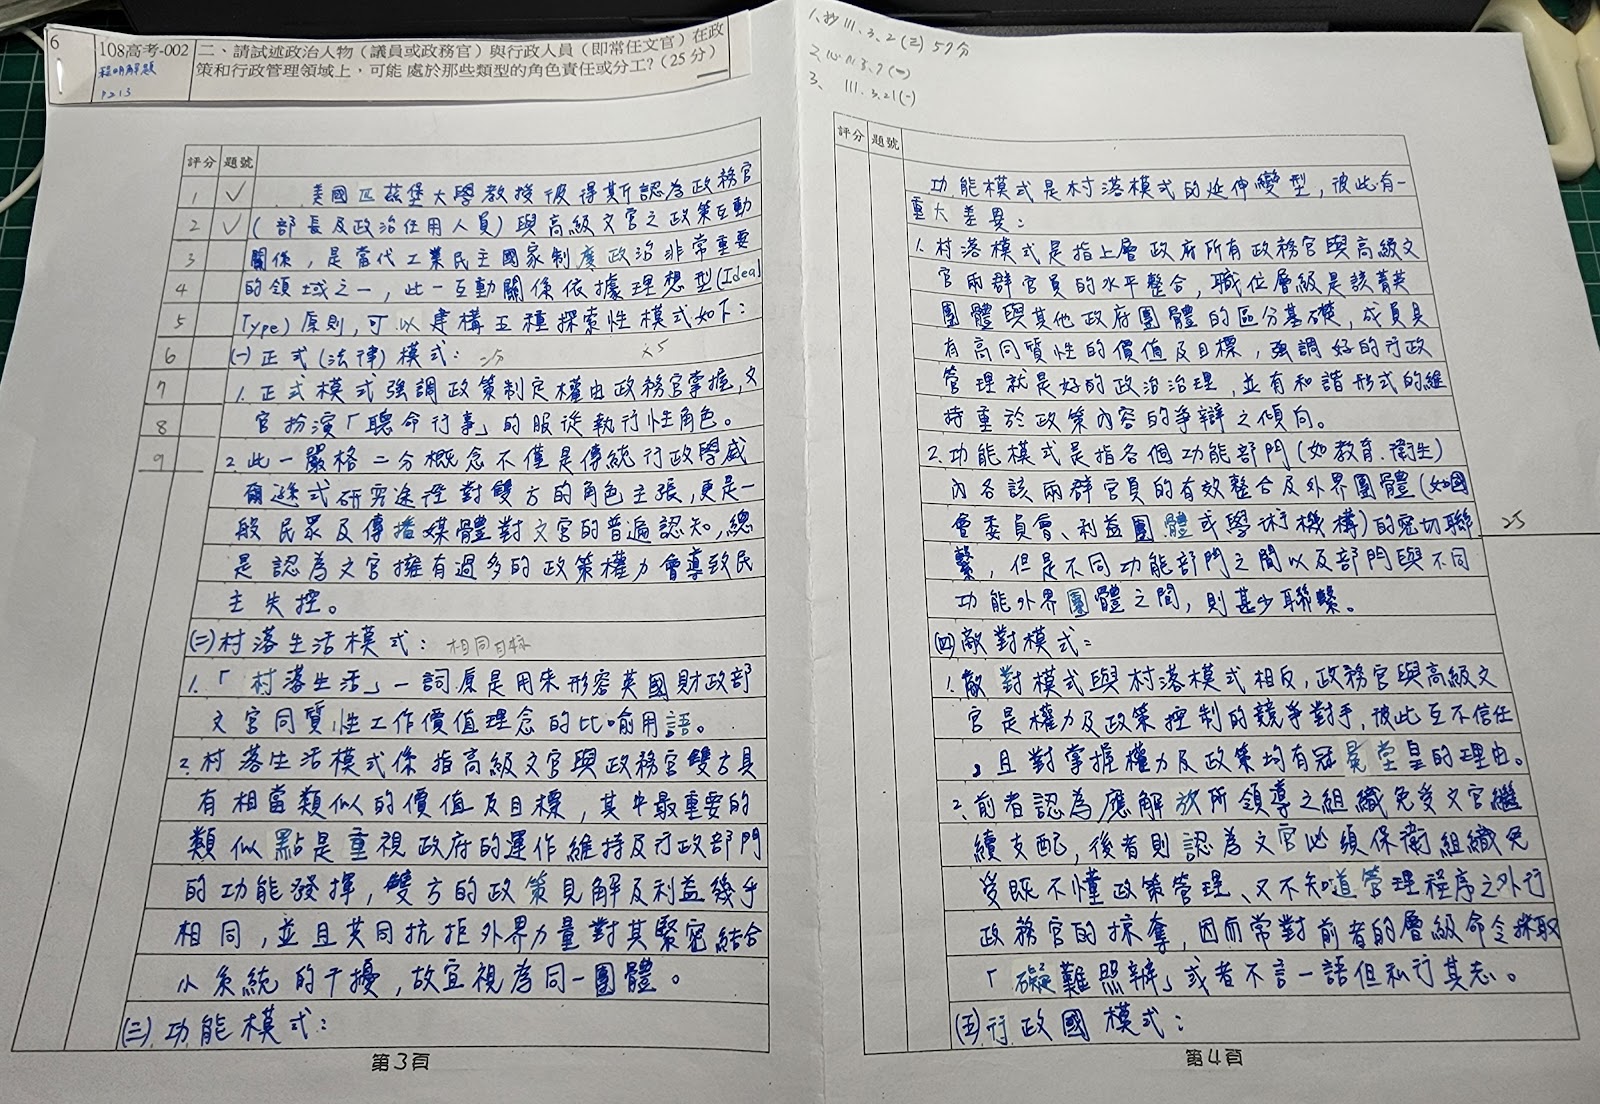 6
108高考-002
程明解題
P213
二、請試述政治人物（議員或政務官）與行政人員（即常任文官）在政
策和行政管理領域上，可能 處於那些類型的角色責任或分工？（25 分）
1、抄111.3.2(三) 57分
3、 111.3.21(一)
評分 題號
1 ✓ 美國匹茲堡大學教授彼得斯認為政務官
2 ✓ (部長及政治任用人員)與高級文官之政策互動
3 關係，是當代工業民主國家制度政治非常重要
4 的領域之一，此一互動關係依據理想型(Ideal
5 Type)原則，可以建構五種探索性模式如下：
6 (一)正式(法律)模式： 二分 x5
7 1.正式模式強調政策制定權由政務官掌握，文
8 官扮演「聽命行事」的服從執行性角色。
9 2.此一嚴格二分概念不僅是傳統行政學威
爾遜式研究途徑對雙方的角色主張，更是一
般民眾及傳播媒體對文官的普遍認知，總
是認為文官擁有過多的政策權力會導致民
主失控。
(二)村落生活模式： 相同目標
1.「村落生活」一詞原是用來形容英國財政部
文官同質性工作價值理念的比喻用語。
2.村落生活模式係指高級文官與政務官雙方具
有相當類似的價值及目標，其中最重要的
類似點是重視政府的運作維持及行政部門
的功能發揮，雙方的政策見解及利益幾乎
相同，並且共同抗拒外界力量對其緊密結合
小系統的干擾，故宜視為同一團體。
(三)功能模式：
第3頁
評分 題號
功能模式是村落模式的延伸變型，彼此有一
重大差異：
1.村落模式是指上層政府所有政務官與高級文
官兩群官員的水平整合，職位層級是該菁英
團體與其他政府團體的區分基礎，成員具
有高同質性的價值及目標，強調好的行政
管理就是好的政治治理，並有和諧形式的維
持重於政策內容的爭辯之傾向。
2.功能模式是指各個功能部門(如教育、衛生)
內各該兩群官員的有效整合及外界團體(如國
會委員會、利益團體或學術機構)的密切聯 25
繫，但是不同功能部門之間以及部門與不同
功能外界團體之間，則甚少聯繫。
(四)敵對模式：
1.敵對模式與村落模式相反，政務官與高級文
官是權力及政策控制的競爭對手，彼此互不信任
，且對掌握權力及政策均有冠冕堂皇的理由。
2.前者認為應解放所領導之組織免受文官繼
續支配，後者則認為文官必須保衛組織免
受既不懂政策管理、又不知道管理程序之外行
政務官的掠奪，因而常對前者的層級命令採取
「礙難照辦」或者不言一語但私行其志。
(五)行政國模式：
第4頁